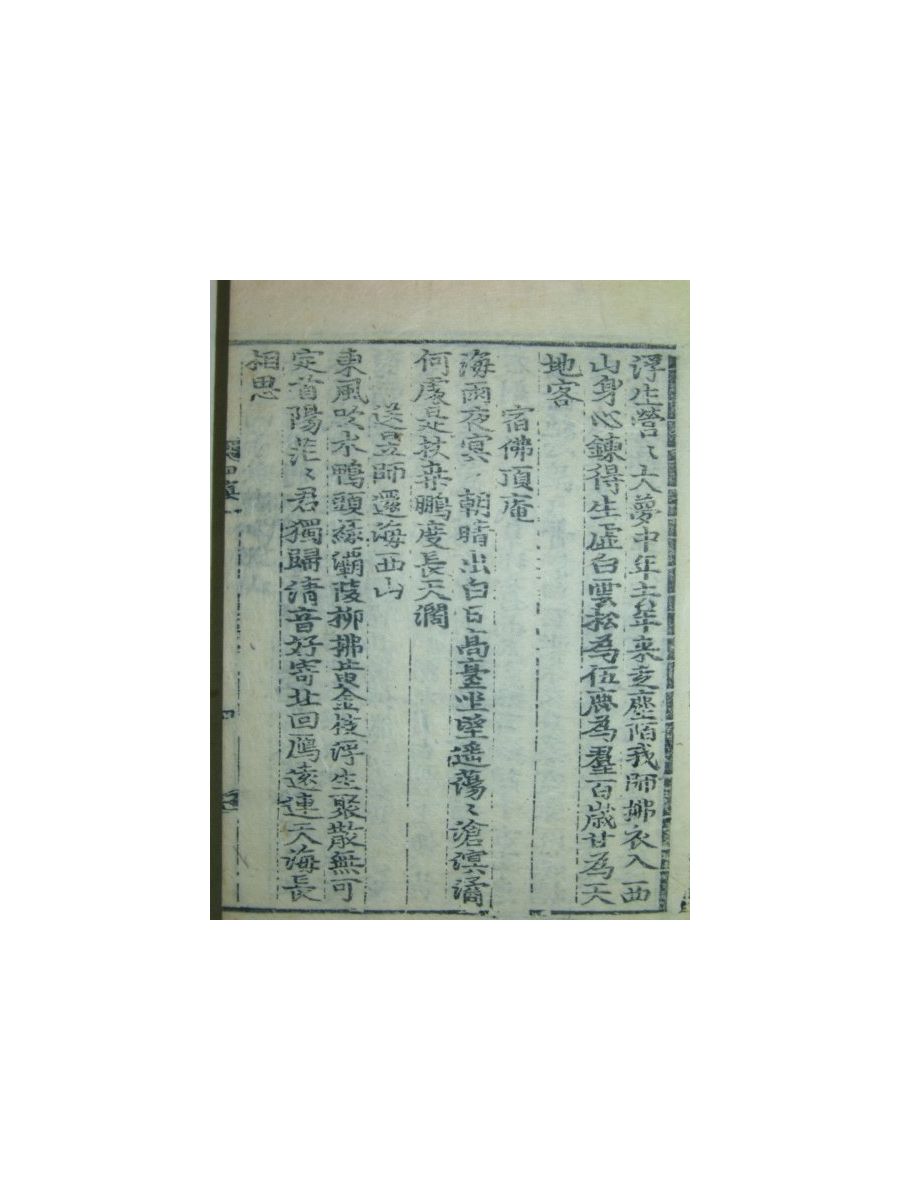 浮生營〻大夢中年去年來走塵陌我師拂衣入西
山身心鍊得生虛白雲松爲伍鹿爲羣百歲甘爲天
地客
宿佛頂庵
海雨夜冥〻朝晴出白日高臺坐望遥蕩〻滄溟濶
何處是扶桒鵬度長天濶
送 師還海西山
東風吹水鴨頭綠灞陵柳拂黃金枝浮生聚散無可
定首陽茫〻君獨歸淸音好寄北回鴈遠連天海長
相思